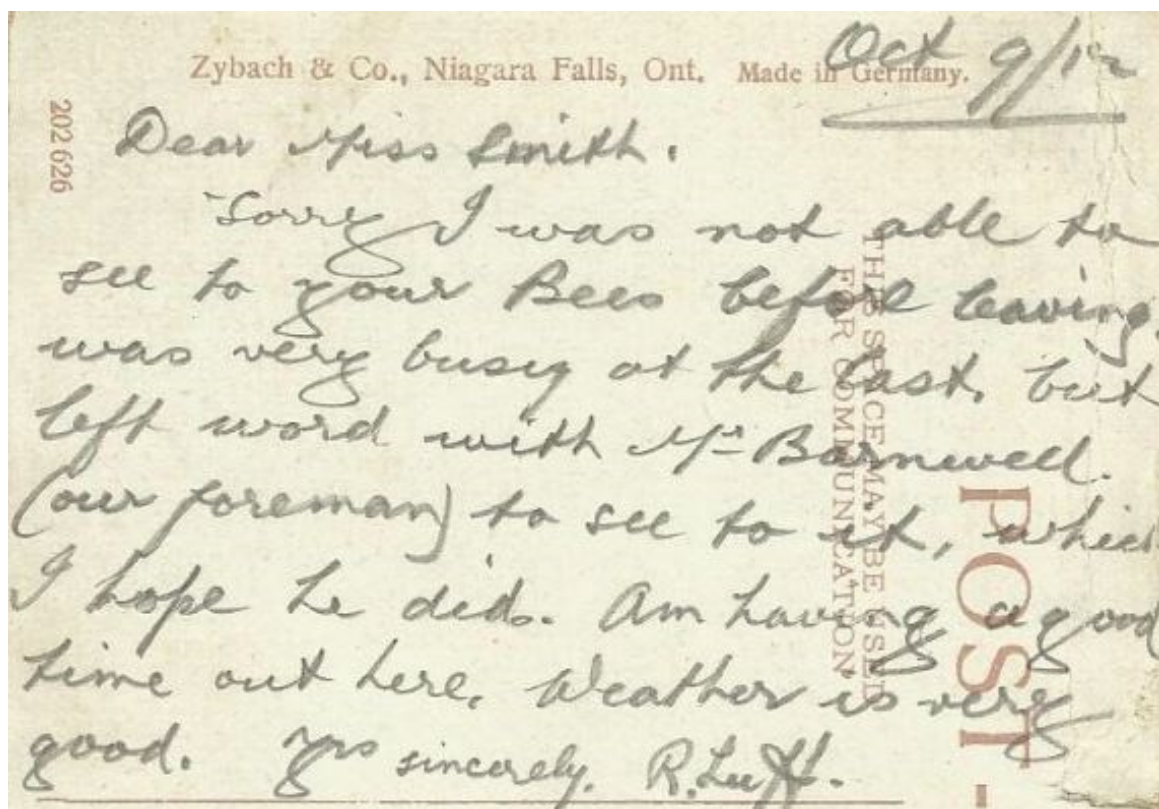 Zybach & Co., Niagara Falls, Ont. Made in Germany.
Oct 9/12
202 626
Dear Miss Smith.
Sorry I was not able to
see to your Bees before leaving,
was very busy at the last, but
left word with Mr Barnwell.
(our foreman) to see to it, which
I hope he did. Am having a good
time out here. Weather is very
good. yrs sincerely. R. Luff.
THIS SPACE MAY BE USED
FOR COMMUNICATION.
POST -